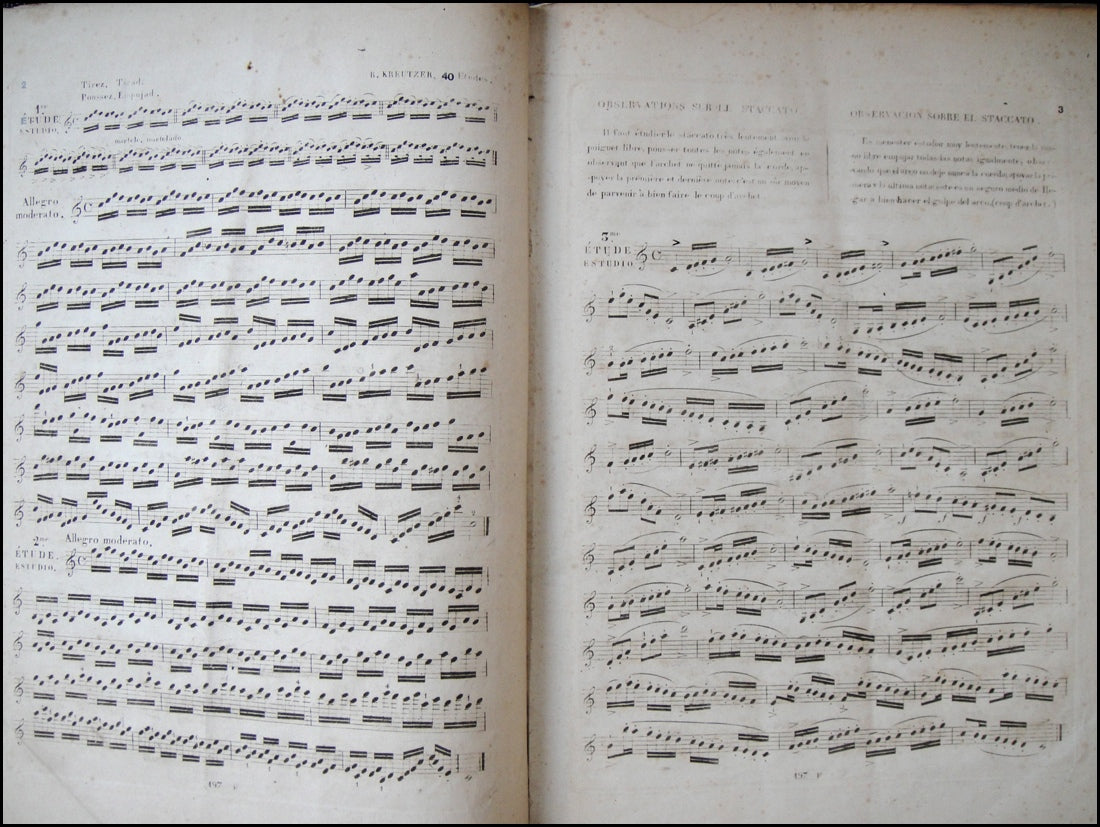 2
R. KREUTZER, 40 Etudes.
Tirez, Tirad.
Poussez, Empujad.
1re
ÉTUDE
ESTUDIO.
martelé, martelado
Allegro
moderato.
2me Allegro moderato.
ÉTUDE.
ESTUDIO.
197 F
3
OBSERVATIONS SUR LE STACCATO
Il faut étudier le staccato très lentement avoir le
poignet libre, pousser toutes les notes également en
observant que l'archet ne quitte jamais la corde, ap-
puyer la première et dernière note c'est un sûr moyen
de parvenir à bien faire le coup d'archet
OBSERVACION SOBRE EL STACCATO.
Es menester estudiar muy lentamente, tener la mu-
ñeca libre empujar todas las notas igualmente, obser-
vando que el arco no deje nunca la cuerda, apoyar la pri-
mera y la ultima nota este es un seguro medio de lle-
gar a bien hacer el golpe del arco.(coup d'archet.)
3me
ÉTUDE
ESTUDIO
197 F